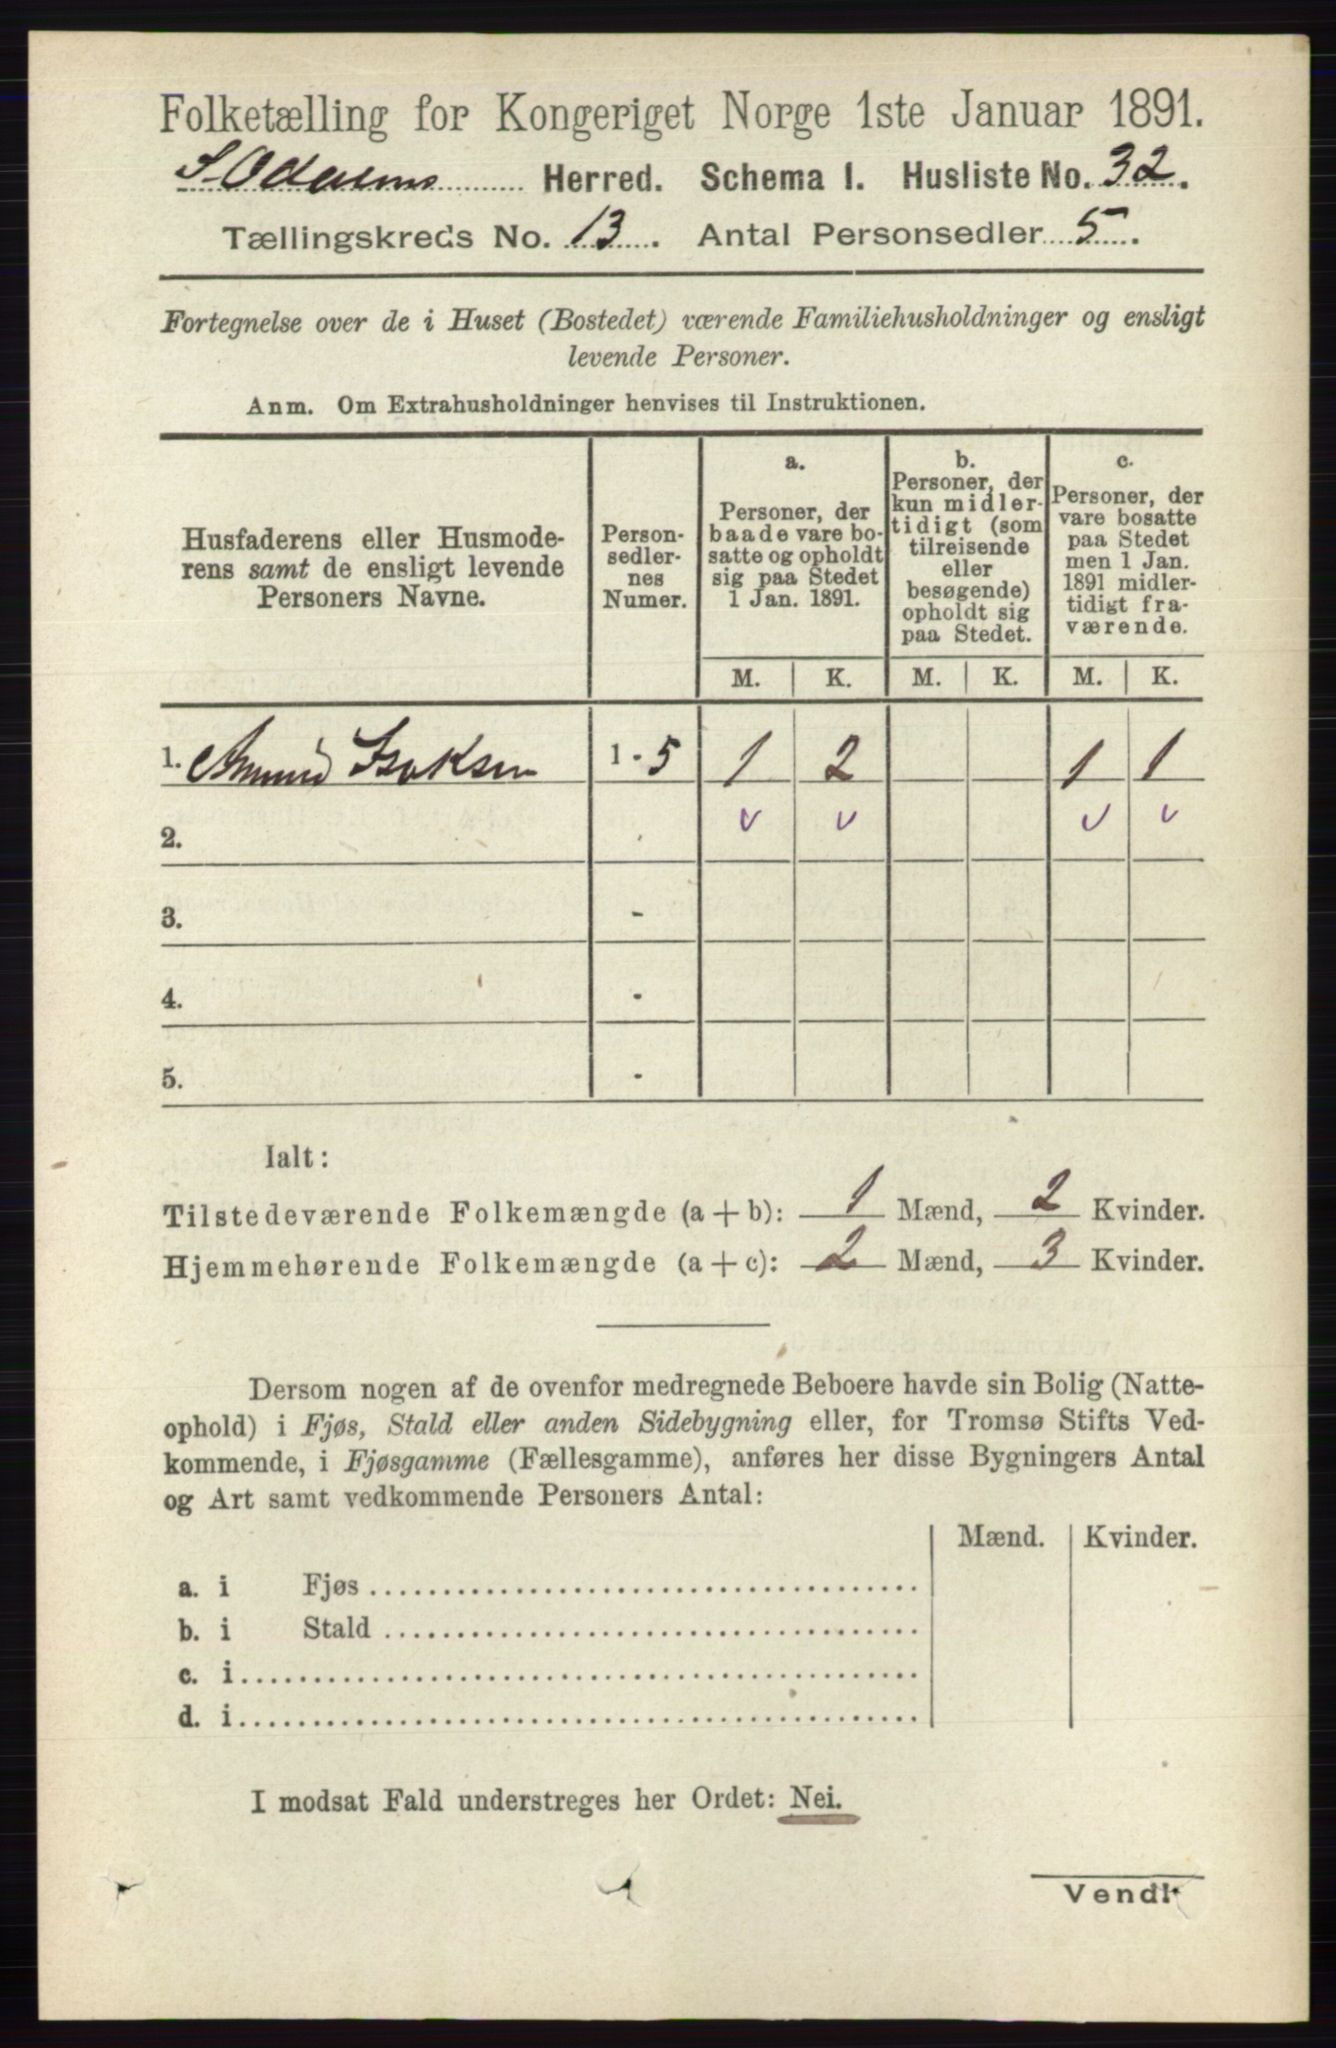 Folketælling for Kongeriget Norge 1ste Januar 1891.
S. Odalens Herred. Schema I. Husliste No. 32.
Tællingskreds No. 13. Antal Personsedler 5.
Fortegnelse over de i Huset (Bostedet) værende Familiehusholdninger og ensligt
levende Personer.
Anm. Om Extrahusholdninger henvises til Instruktionen.
Husfaderens eller Husmode-
rens samt de ensligt levende
Personers Navne.
Person-
sedler-
nes
Numer.
a.
Personer, der
baade vare bo-
satte og opholdt
sig paa Stedet
1 Jan. 1891.
b.
Personer, der
kun midler-
tidigt (som
tilreisende
eller
besøgende)
opholdt sig
paa Stedet.
c.
Personer, der
vare bosatte
paa Stedet
men 1 Jan.
1891 midler-
tidigt fra-
værende.
M. K. M. K. M. K.
1. Amund Isaksen 1 - 5 1 2 1 1
2. v v v v
3. -
4. -
5. -
Ialt:
Tilstedeværende Folkemængde (a + b): 1 Mænd, 2 Kvinder.
Hjemmehørende Folkemængde (a + c): 2 Mænd, 3 Kvinder.
Dersom nogen af de ovenfor medregnede Beboere havde sin Bolig (Natte-
ophold) i Fjøs, Stald eller anden Sidebygning eller, for Tromsø Stifts Ved-
kommende, i Fjøsgamme (Fællesgamme), anføres her disse Bygningers Antal
og Art samt vedkommende Personers Antal:
Mænd. Kvinder.
a. i Fjøs
b. i Stald
c. i
d. i
I modsat Fald understreges her Ordet: Nei.
Vend!